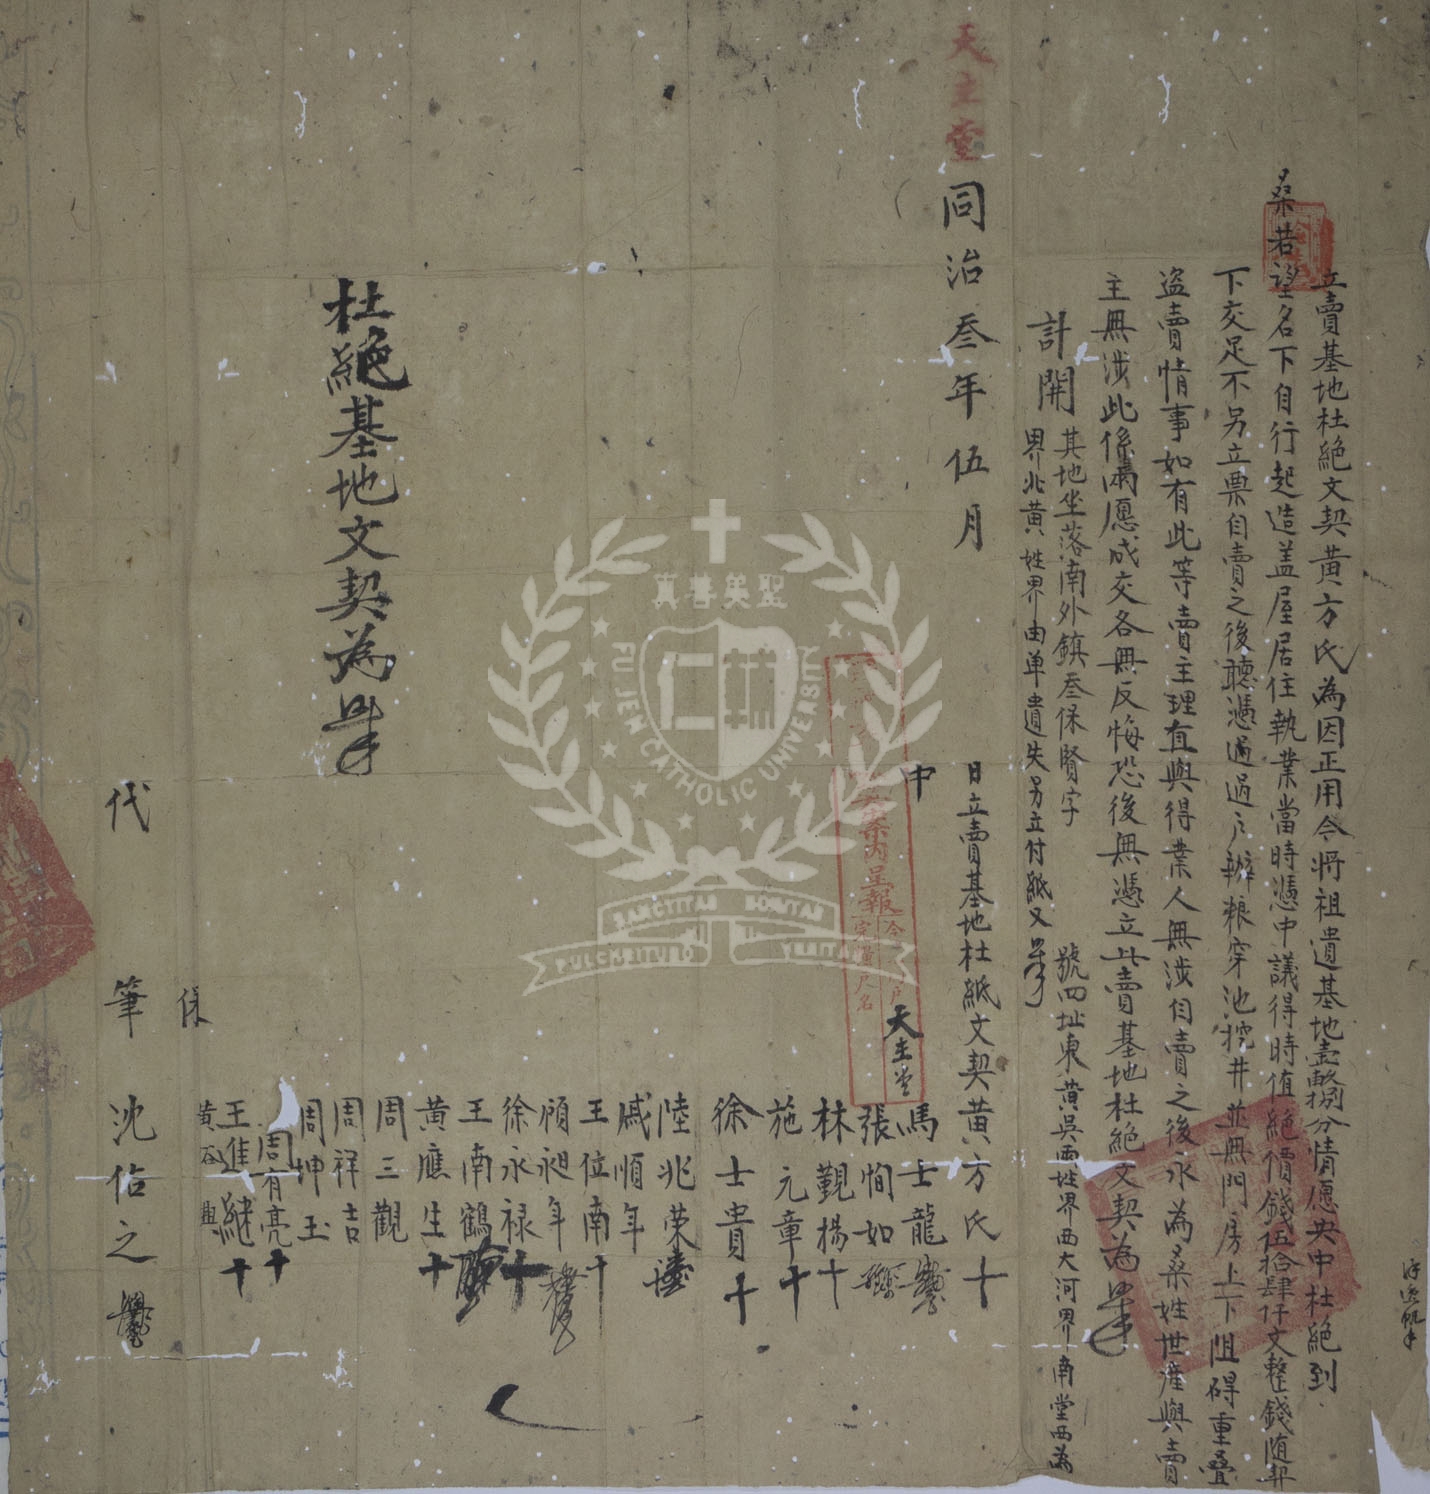 立賣基地杜絕文契黃方氏為因正用今將祖遺基地壹整捌分情愿央中杜絕到
桑若望名下自行起造盖屋居住執業當時憑中議得時值絕價錢伍拾肆仟文整錢隨契
下交足不另立票自賣之後聽憑過戶辦粮穿池挖井並無門房上下阻碍重疊
盜賣情事如有此等賣主理直與得業人無涉自賣之後永為桑姓世産與賣
主無涉此係兩愿成交各無反悔恐後無憑立此賣基地杜絕文契為
計開
其地坐落南外鎮叁保賢字
號四址東黃吳兩姓界西大河界南堂西為
界北黃姓界由单遺失另立付紙又
天主堂
同治叁年伍月
日立賣基地杜絕文契黃方氏十
中
案內呈報
天主堂
馬士龍
張恂如
林觀揚十
施元章十
徐士貴十
陸兆荣
戚順年
王位南十
顧昶年
徐永禄十
王南鶴
黃應生十
周三觀
周祥吉
周坤玉
周有亮十
王進繼十
保
杜絕基地文契為
代筆
沈佶之
真善美聖
FU JEN CATHOLIC UNIVERSITY
SANCTITAS BONITAS
PULCHRITUDO